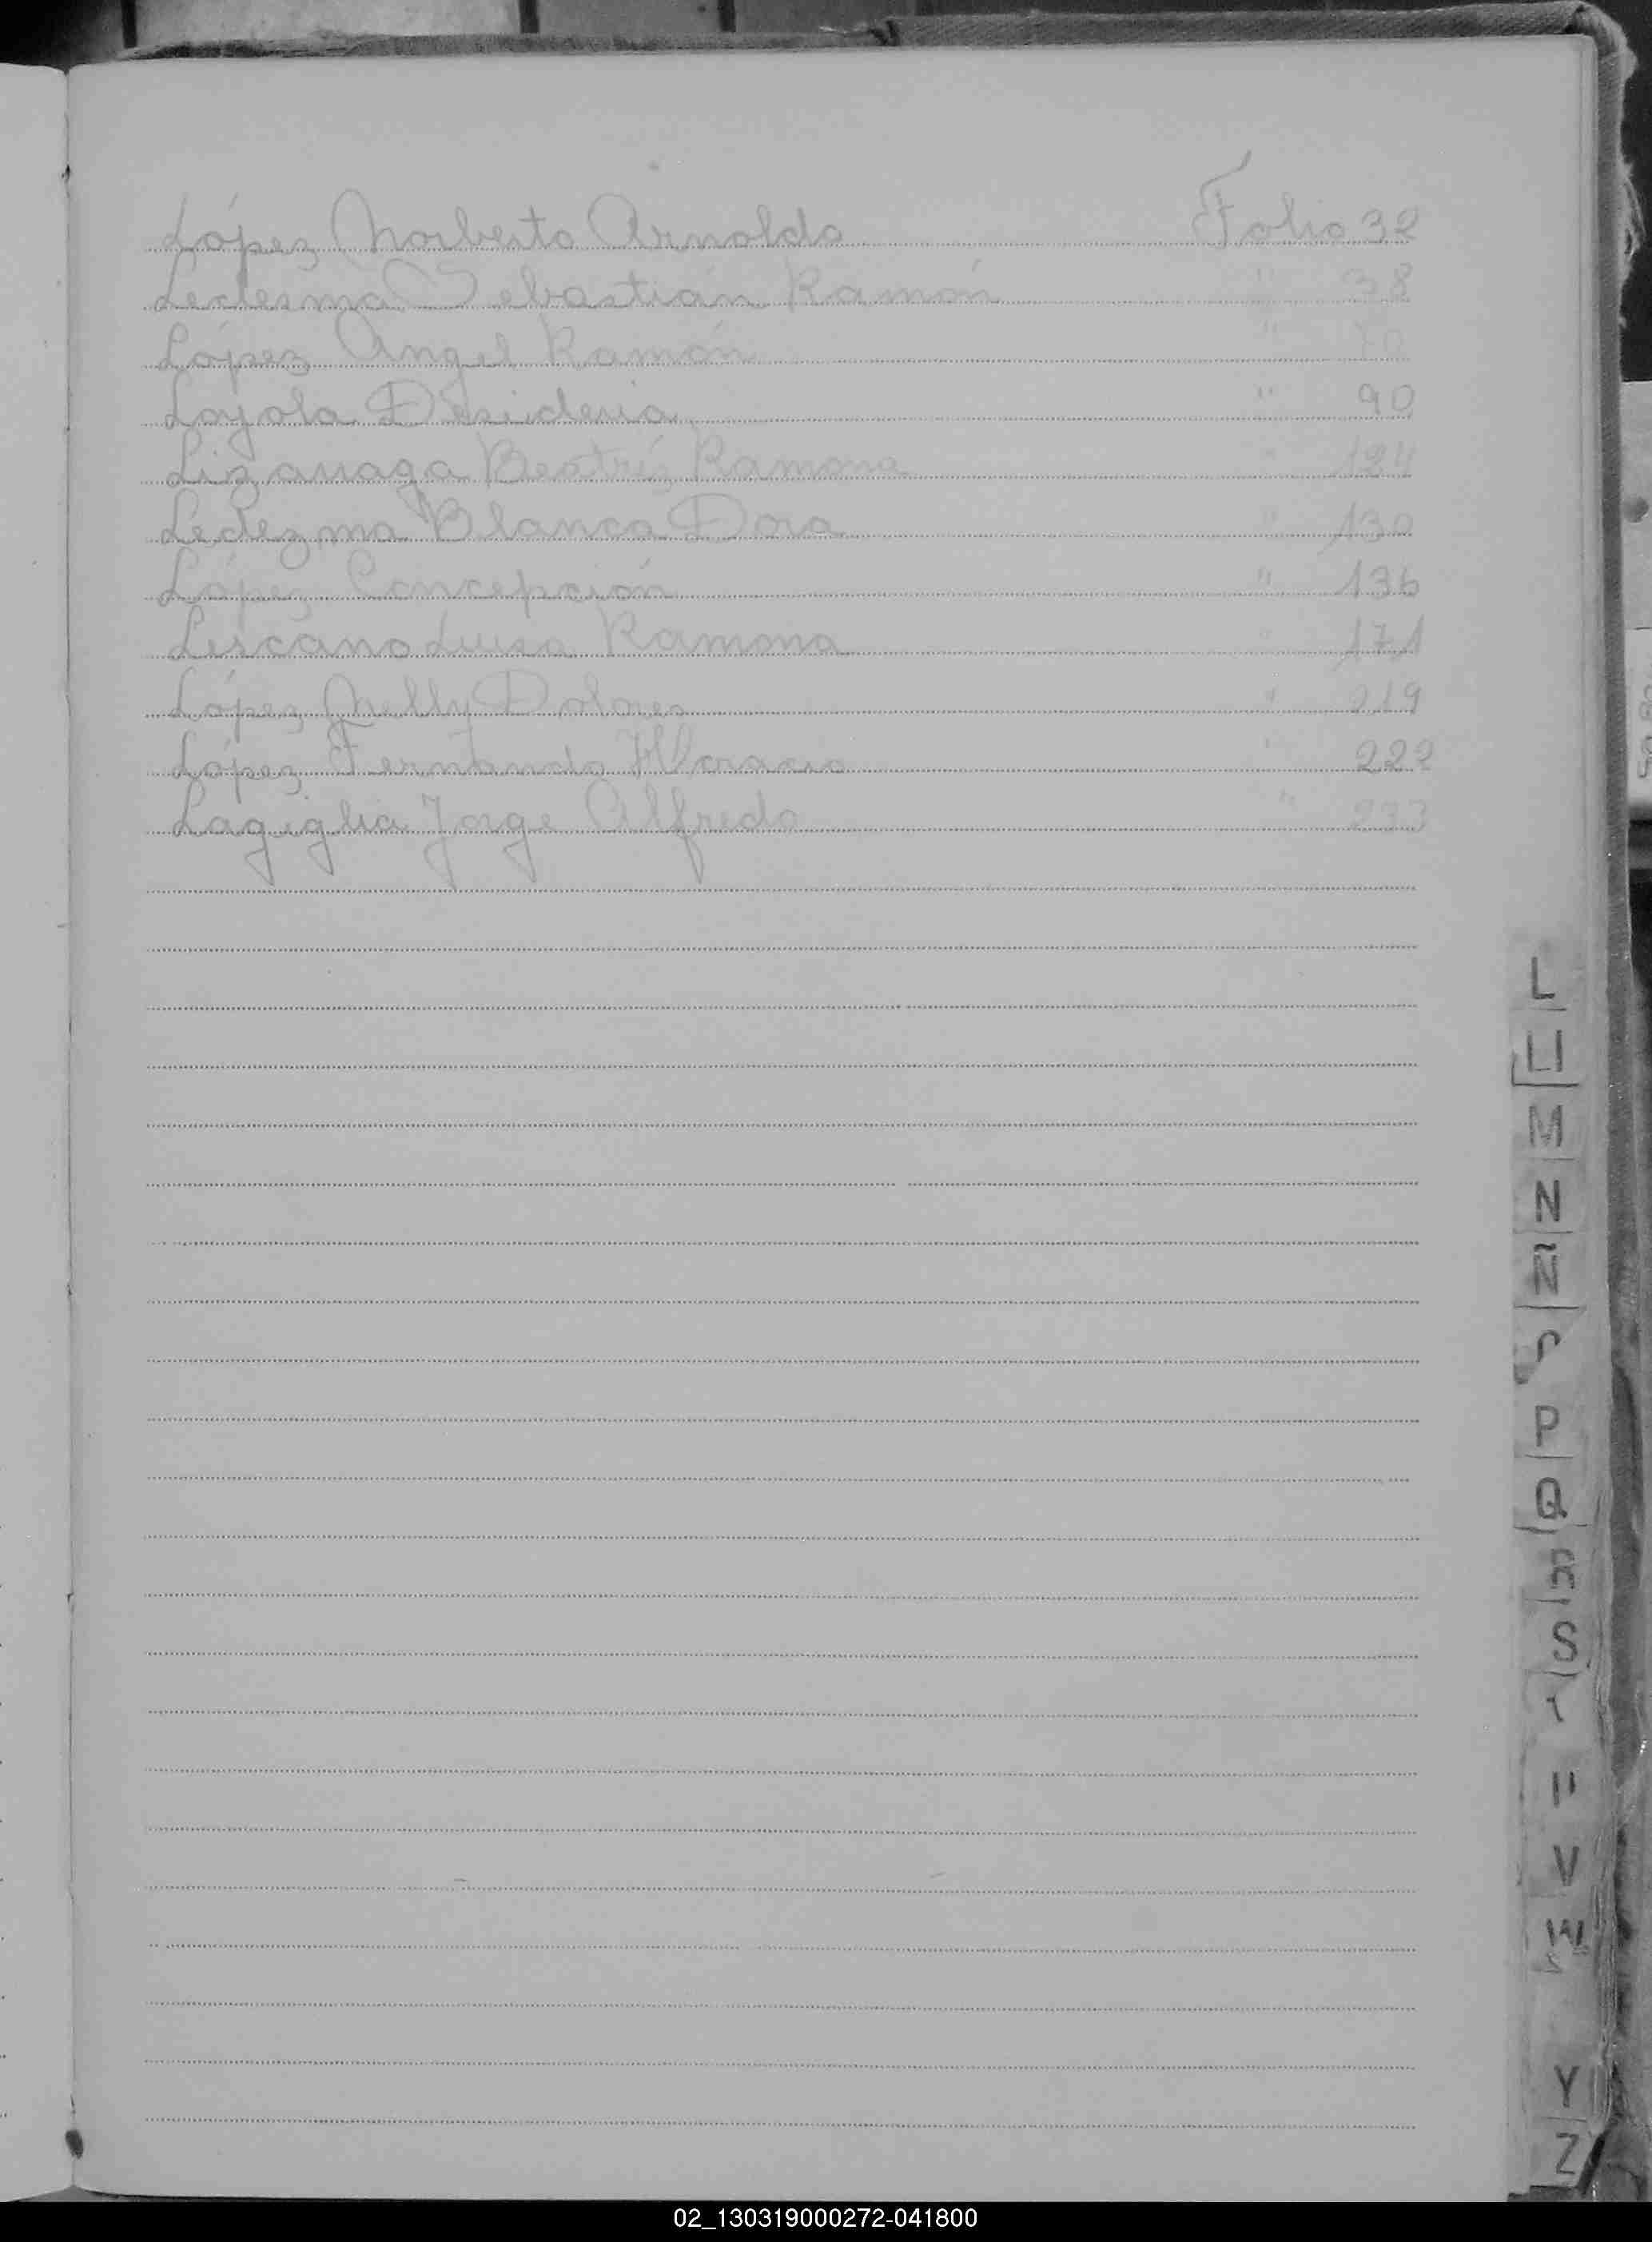 López Norberto Arnoldo Folio 32
Ledesma Sebastián Ramón " 38
López Angel Ramón " 70
Loyola Desideria " 90
Lizarraga Beatríz Ramona " 124
Ledezma Blanca Dora " 130
López Concepción " 136
Lescano Luisa Ramona " 171
López Nelly Dolores " 219
López Fernando Horacio " 222
Lagiglia Jorge Alfredo " 233
L
M
N
Ñ
P
Q
R
S
V
W
Y
Z
02_130319000272-041800